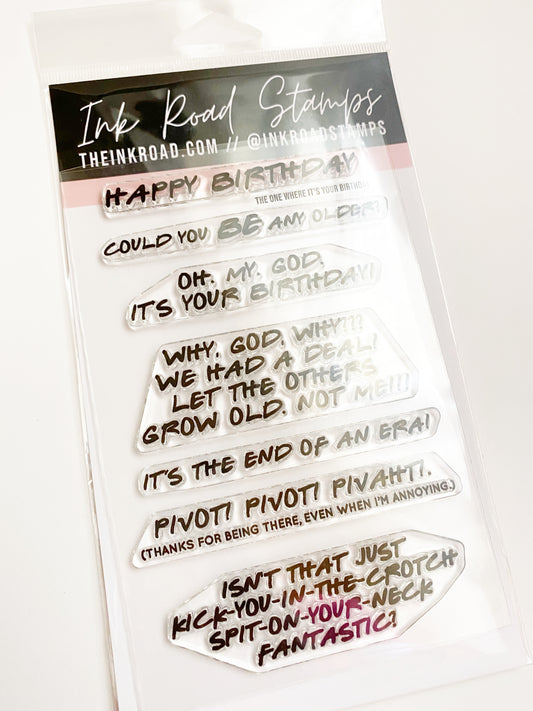 Ink Road Stamps
THEINKROAD.COM // @INKROADSTAMPS
HAPPY BIRTHDAY
THE ONE WHERE IT'S YOUR BIRTHDAY
COULD YOU BE ANY OLDER?
OH. MY. GOD.
IT'S YOUR BIRTHDAY!
WHY, GOD, WHY???
WE HAD A DEAL!
LET THE OTHERS
GROW OLD. NOT ME!!!
IT'S THE END OF AN ERA!
PIVOT! PIVOT! PIVAHT!.
(THANKS FOR BEING THERE, EVEN WHEN I'M ANNOYING.)
ISN'T THAT JUST
KICK-YOU-IN-THE-CROTCH
SPIT-ON-YOUR-NECK
FANTASTIC?